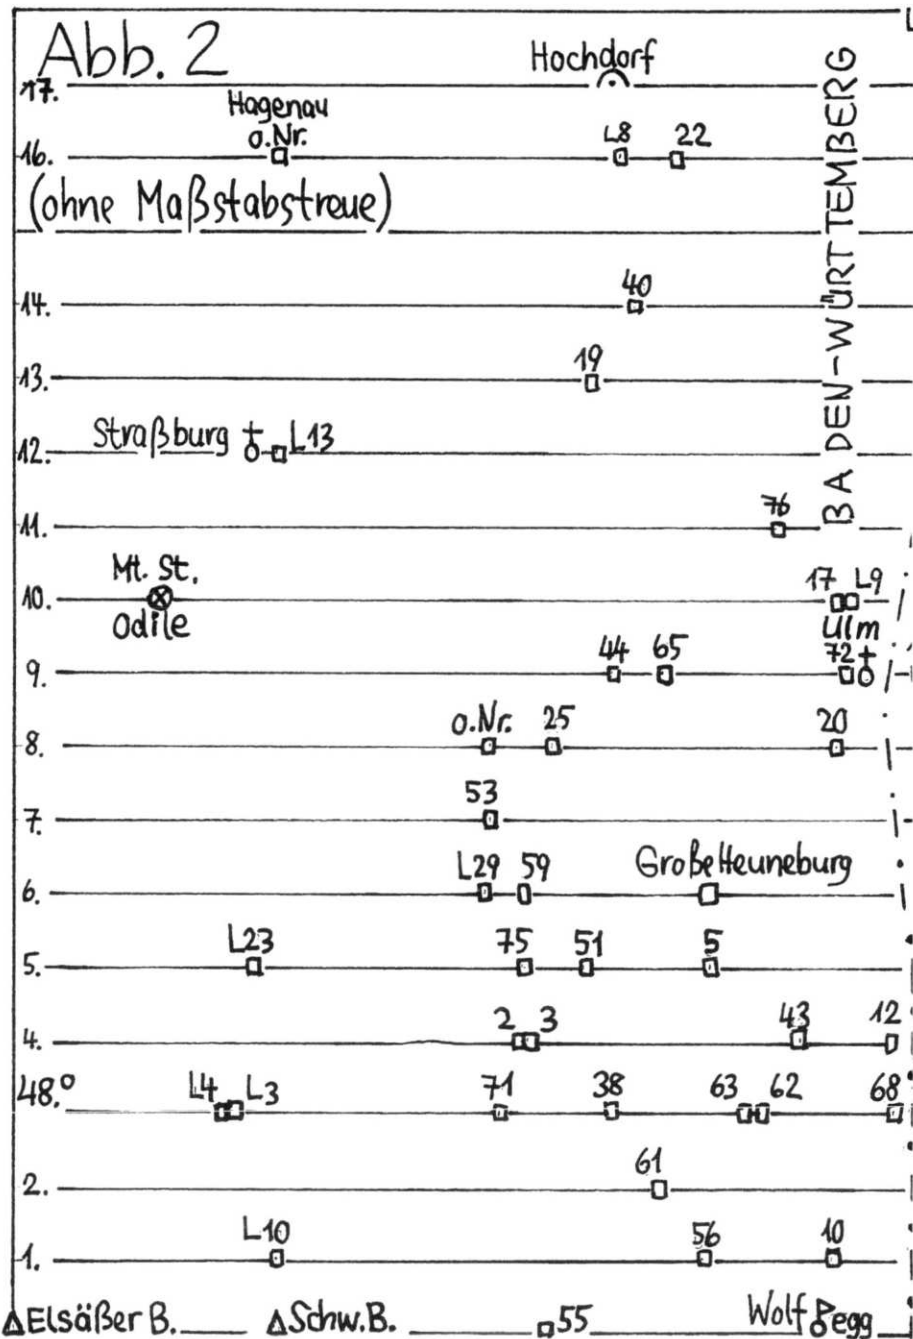 Abb. 2
Hochdorf
17.
Hagenau
o.Nr. L8 22
16.
(ohne Maßstabstreue)
BADEN-WÜRTTEMBERG
40
14.
19
13.
Straßburg L13
12.
76
11.
Mt. St.
17 L9
10.
Odile
Ulm
44 65 72
9.
o.Nr. 25 20
8.
53
7.
L29 59 Große Heuneburg
6.
L23 75 51 5
5.
2 3 43 12
4.
48° L4 L3 71 38 63 62 68
61
2.
L10 56 10
1.
Elsäßer B. Schw.B. 55 Wolfegg